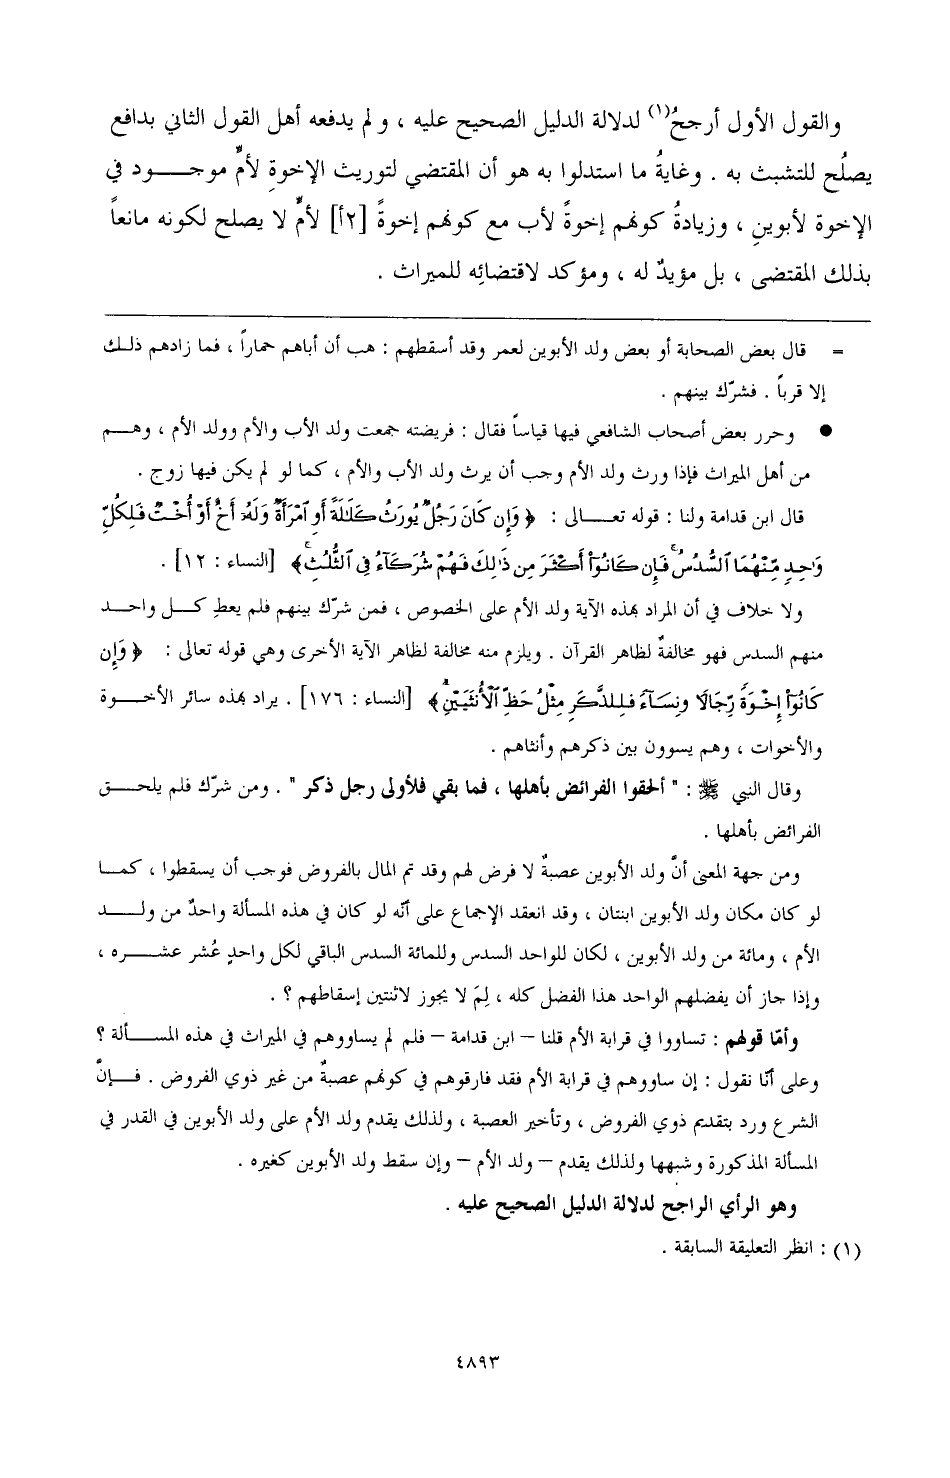 والقول الأول أرجحُ(١) لدلالة الدليل الصحيح عليه ، و لم يدفعه أهل القول الثاني بدافع
يصلُح للتشبث به . وغايةُ ما استدلوا به هو أن المقتضي لتوريث الإخوةِ لأمٍّ موجـــود في
الإخوة لأبوينِ ، وزيادةُ كونهم إخوةً لأب مع كونهم إخوةً [٢أ] لأمٍّ لا يصلح لكونه مانعاً
بذلك المقتضى ، بل مؤيدٌ له ، ومؤكد لاقتضائِه للميراث .
= قال بعض الصحابة أو بعض ولد الأبوين لعمر وقد أسقطهم : هب أن أباهم حماراً ، فما زادهم ذلـك
إلا قرباً . فشرّك بينهم .
● وحرر بعض أصحاب الشافعي فيها قياساً فقال : فريضته جمعت ولد الأب والأم وولد الأم ، وهـــم
من أهل الميراث فإذا ورث ولد الأم وجب أن يرث ولد الأب والأم ، كما لو لم يكن فيها زوج .
قال ابن قدامة ولنا : قوله تعـــالى : ﴿ وَإِن كَانَ رَجُلٌ يُورَثُ كَلَالَةً أَوِ ٱمْرَأَةٌ وَلَهُۥٓ أَخٌ أَوْ أُخْتٌ فَلِكُلِّ
وَٰحِدٍ مِّنْهُمَا ٱلسُّدُسُ ۚ فَإِن كَانُوٓا۟ أَكْثَرَ مِن ذَٰلِكَ فَهُمْ شُرَكَآءُ فِى ٱلثُّلُثِ ۚ ﴾ [النساء : ١٢] .
ولا خلاف في أن المراد بهذه الآية ولد الأم على الخصوص ، فمن شرّك بينهم فلم يعطِ كـــل واحـــد
منهم السدس فهو مخالفةٌ لظاهر القرآن . ويلزم منه مخالفة لظاهر الآية الأخرى وهي قوله تعالى : ﴿ وَإِن
كَانُوٓا۟ إِخْوَةً رِّجَالًا وَنِسَآءً فَلِلذَّكَرِ مِثْلُ حَظِّ ٱلْأُنثَيَيْنِ ۗ ﴾ [النساء : ١٧٦] . يراد بهذه سائر الأخـــوة
والأخوات ، وهم يسوون بين ذكرهم وأنثاهم .
وقال النبي ﷺ : " ألحقوا الفرائض بأهلها ، فما بقي فلأولى رجل ذكر " . ومن شرّك فلم يلحـــق
الفرائض بأهلها .
ومن جهة المعنى أنَّ ولد الأبوين عصبةٌ لا فرض لهم وقد تم المال بالفروض فوجب أن يسقطوا ، كمـــا
لو كان مكان ولد الأبوين ابنتان ، وقد انعقد الإجماع على أنّه لو كان في هذه المسألة واحدٌ من ولـــد
الأم ، ومائة من ولد الأبوين ، لكان للواحد السدس وللمائة السدس الباقي لكل واحدٍ عُشر عشـــره ،
وإذا جاز أن يفضلهم الواحد هذا الفضل كله ، لِمَ لا يجوز لاثنتين إسقاطهم ؟ .
وأمّا قولهم : تساووا في قرابة الأم قلنا – ابن قدامة – فلم لم يساووهم في الميراث في هذه المســـألة ؟
وعلى أنّا نقول : إن ساووهم في قرابة الأم فقد فارقوهم في كونهم عصبةٌ من غير ذوي الفروض . فـــإنَّ
الشرع ورد بتقديم ذوي الفروض ، وتأخير العصبة ، ولذلك يقدم ولد الأم على ولد الأبوين في القدر في
المسألة المذكورة وشبهها ولذلك يقدم – ولد الأم – وإن سقط ولد الأبوين كغيره .
وهو الرأي الراجح لدلالة الدليل الصحيح عليه .
(١) : انظر التعليقة السابقة .
٤٨٩٣